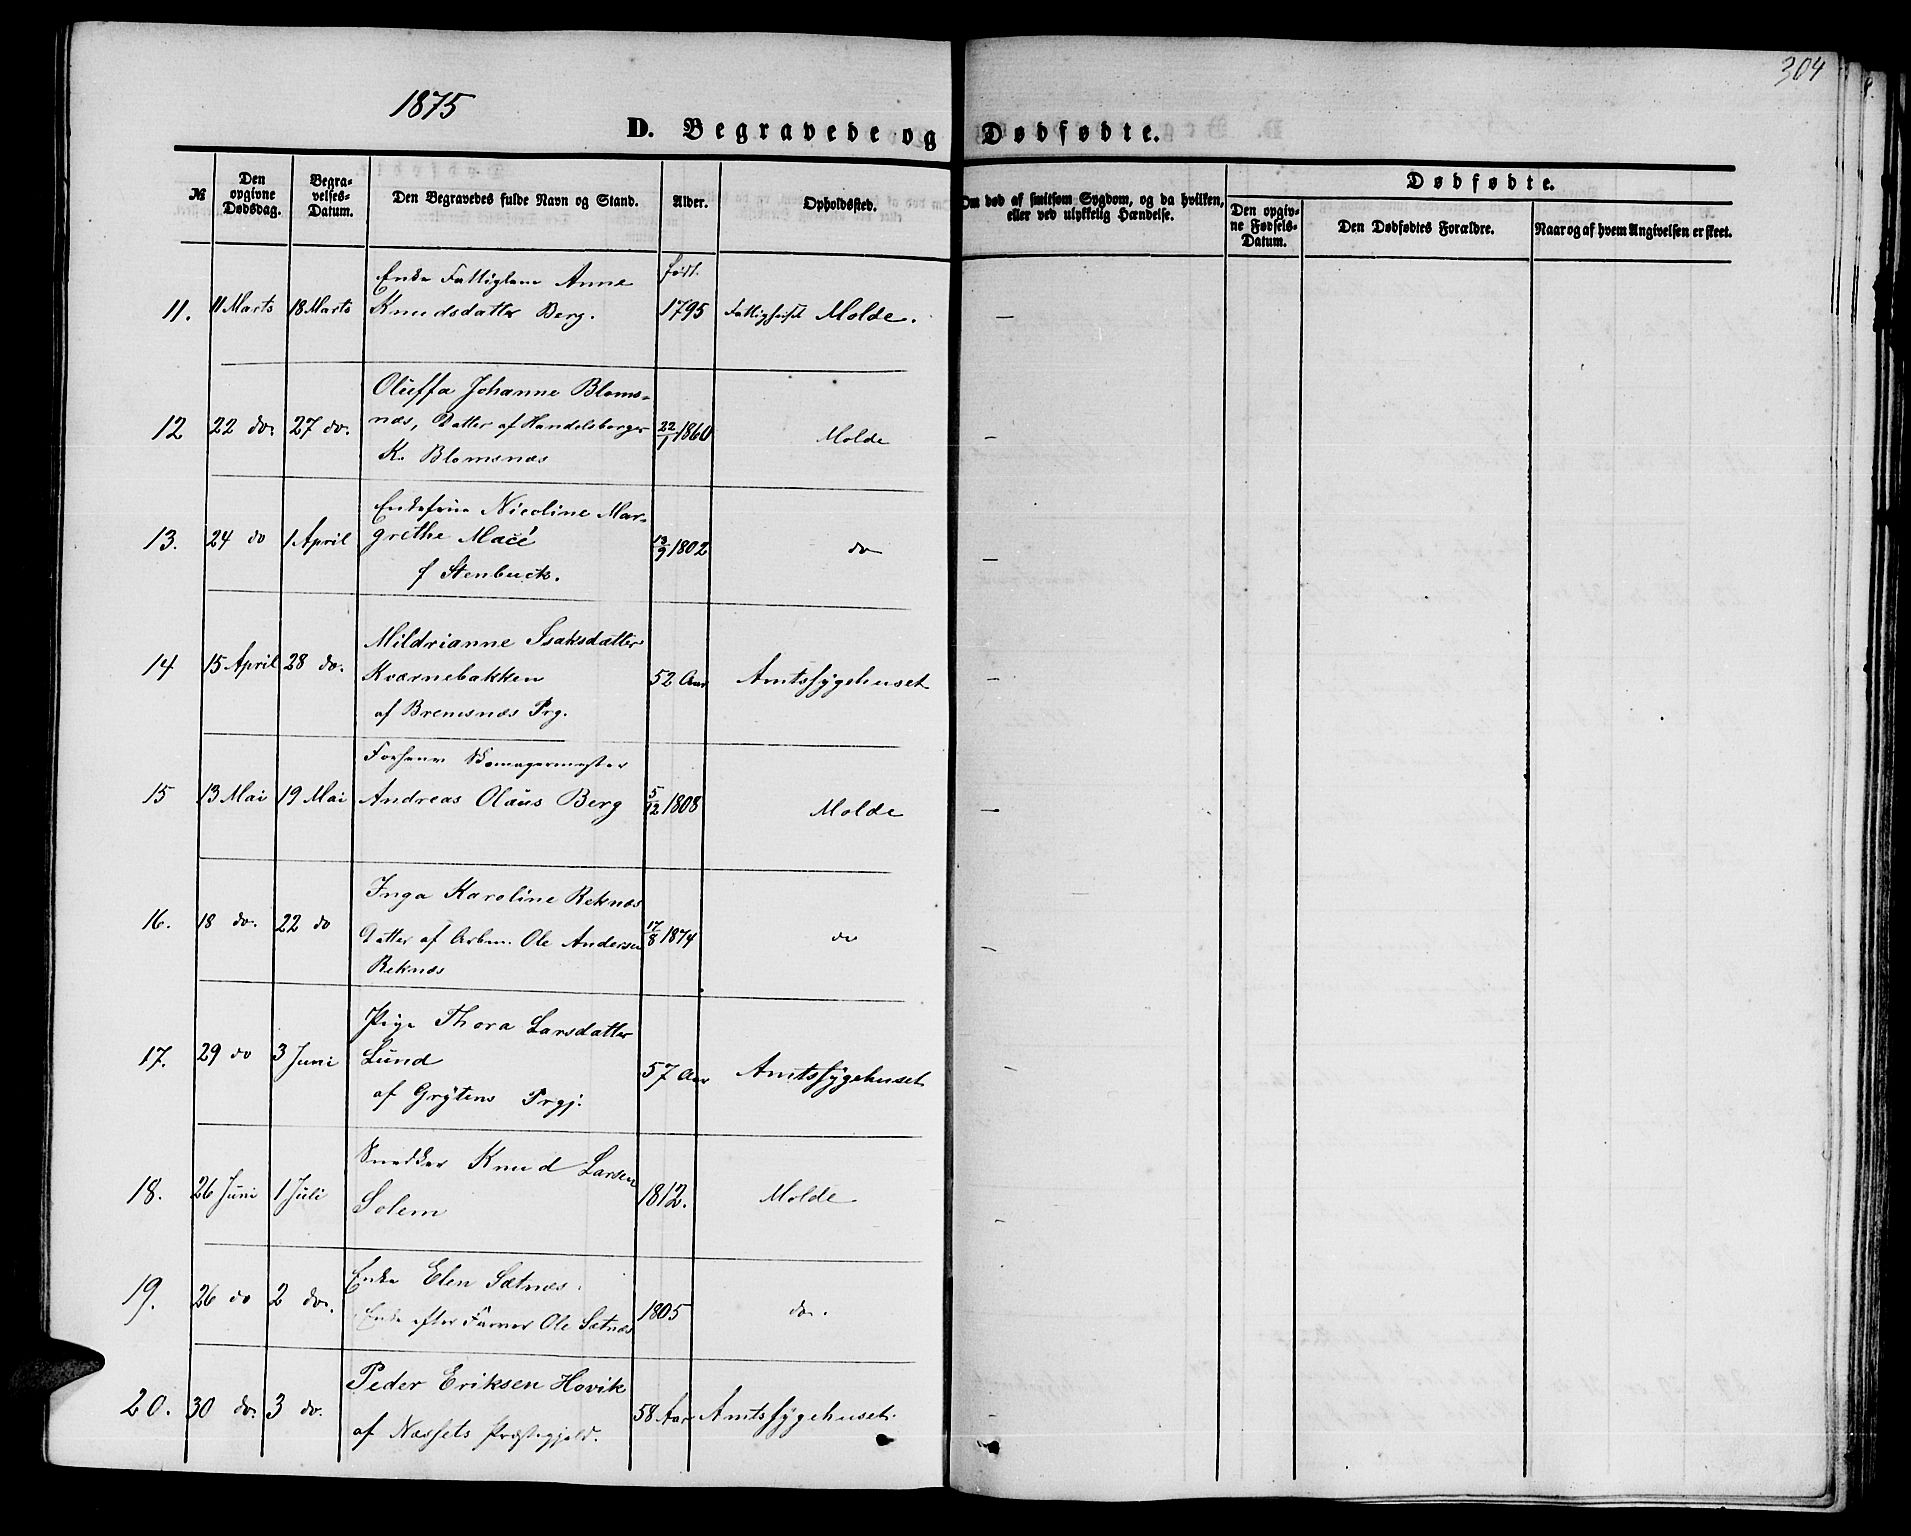 1875
304
D. Begravede og Dødfødte.
№
Den opgivne Dødsdag.
Begravelses-Datum.
Den Begravedes fulde Navn og Stand.
Alder.
Opholdssted.
Om død af smitsom Sygdom, og da hvilken,
eller ved ulykkelig Hændelse.
Dødfødte.
Den opgivne Fødsels-Datum.
Den Dødfødtes Forældre.
Naar og af hvem Angivelsen er skeet.
Enke Fattiglem Anne født
11. 11 Marts 18 Marts Knudsdatter Berg. 1795 Fattighuset Molde. —
Oluffa Johanne Bloms-
12 22 do. 27 do. næs, Datter af Handelsborger 22/1 1860 Molde —
K. Blomsnæs
Enkefrue Nicoline Mar-
13. 24 do 1 April grethe Macé 13/9 1802 do —
f Stenbuck.
Mildrianne Isaksdatter
14 15 April 28 do. Kværnebakken 52 Aar Amtssygehuset —
af Bremsnæs Prg.
Forhenv Skomagermester
15 13 Mai 19 Mai Andreas Olaus Berg 5/12 1808 Molde —
Inga Karoline Reknæs
16. 18 do. 22 do Datter af Arbm. Ole Andersen 17/8 1874 do —
Reknæs
Pige Thora Larsdatter
17. 29 do 3 Juni Lund 57 Aar Amtssygehuset
af Grytens Prgj.
Snedker Knud Larsen
18. 26 Juni 1 Juli Solem 1812. Molde —
Enke Elen Sætnæs.
19. 26 do 2 do. Enke efter Farver Ole Sætnæs 1805 do.
Peder Eriksen Hovik
20. 30 do. 3 do. af Næssets Præstegjeld. 58 Aar Amtssygehuset. —